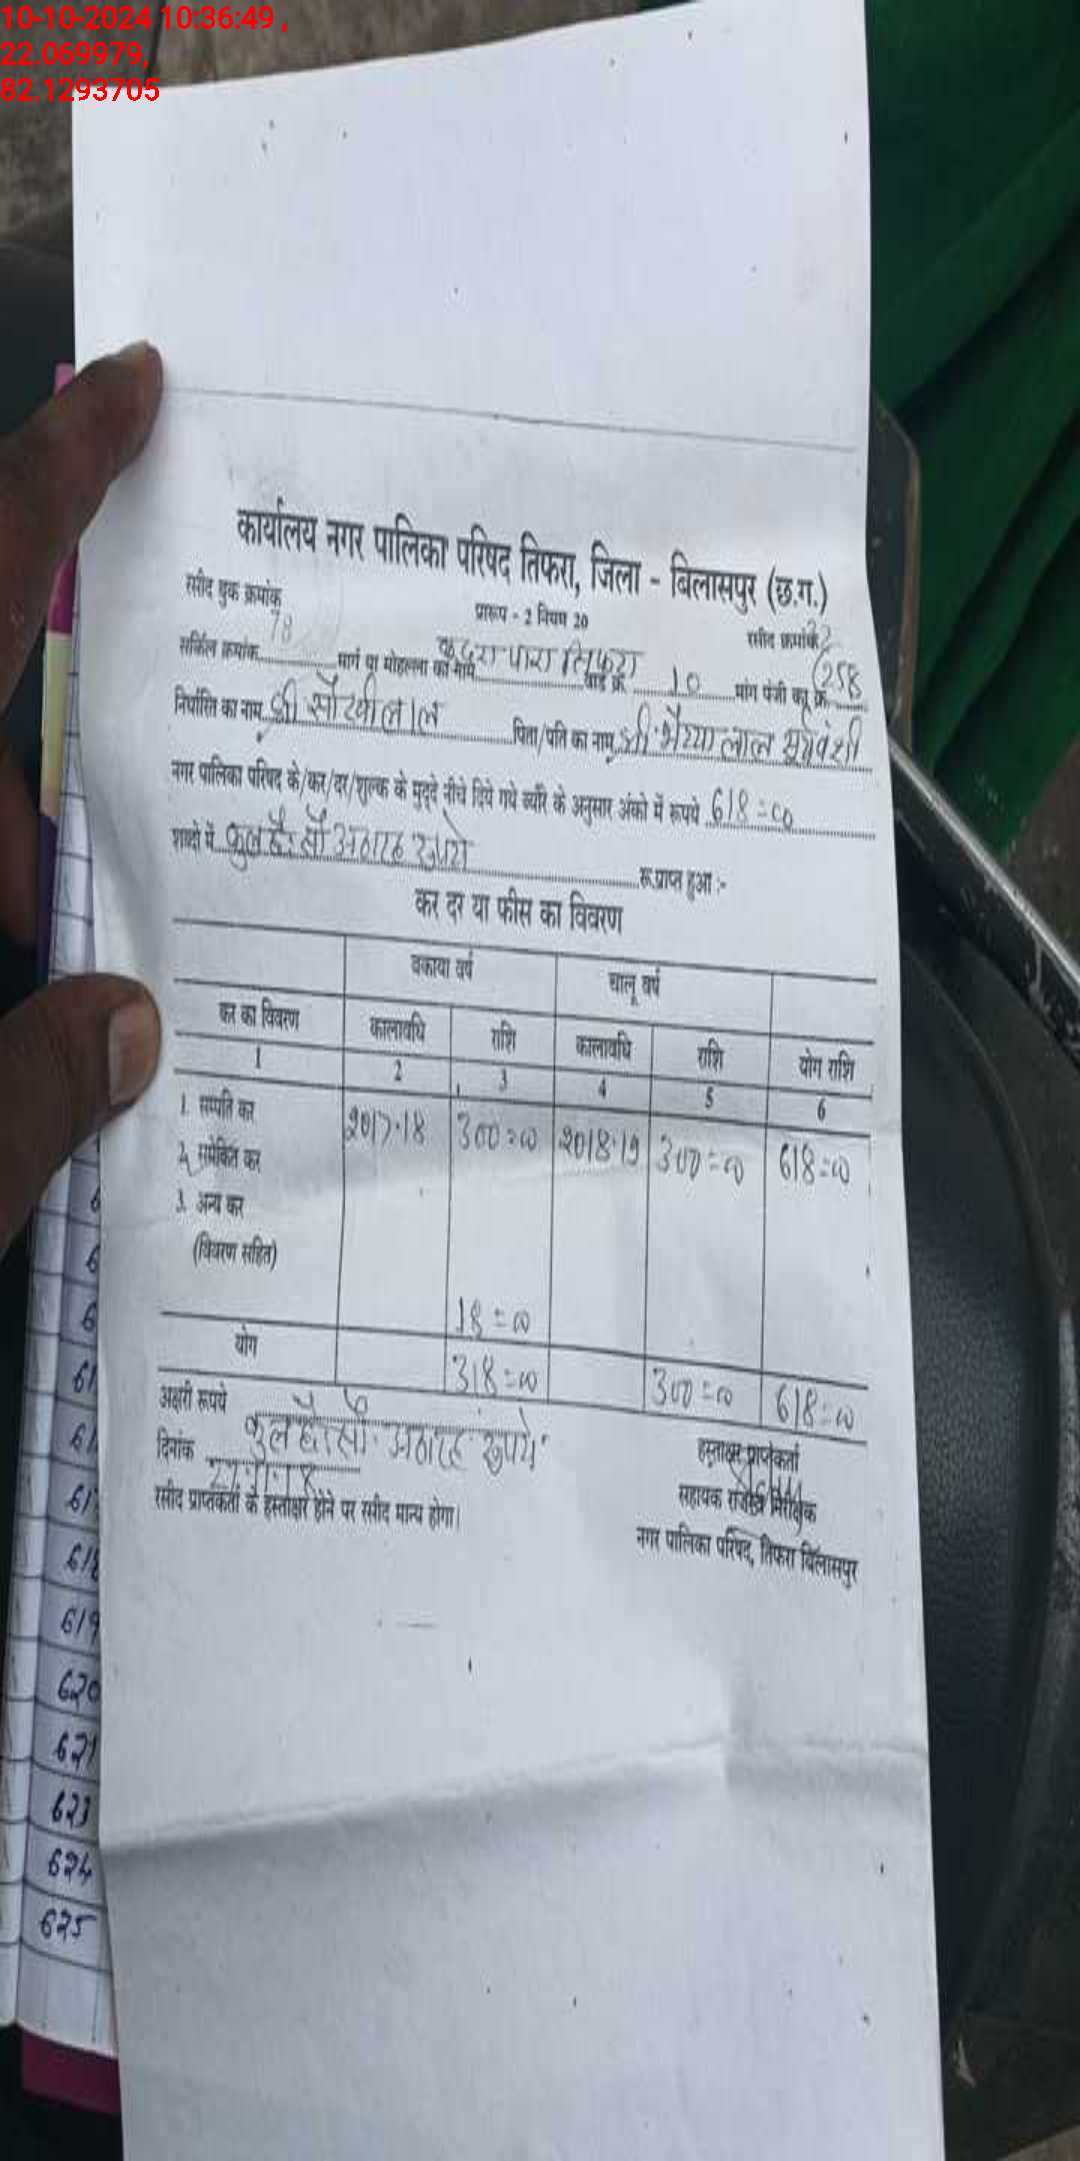 10-10-2024 10:36:49 ,
22.069979,
82.1293705
कार्यालय नगर पालिका परिषद तिफरा, जिला - बिलासपुर (छ.ग.)
रसीद बुक क्रमांक 78
प्रारूप - 2 नियम 20
रसीद क्रमांक 32
सर्किल क्रमांक मार्ग या मोहल्ला का नाम पारा तिफरा वार्ड क्र. 10 मांग पंजी क्र. 258
निर्धारिती का नाम श्री सौखीलाल पिता/पति का नाम श्री भैय्या लाल सूर्यवंशी
नगर पालिका परिषद के/कर/दर/शुल्क के मुद्दे नीचे दिये गये ब्यौरे के अनुसार अंको में रूपये 618=00
शब्दो में कुल छैः सौ अठारह रुपये रू.प्राप्त हुआ :-
कर दर या फीस का विवरण
वकाया वर्ष चालू वर्ष
कर का विवरण कालावधि राशि कालावधि राशि योग राशि
1 2 3 4 5 6
1. सम्पति कर 2017-18 300=00 2018-19 300=00 618=00
2. समेकित कर
3. अन्य कर
(विवरण सहित)
18=00
योग 318=00 300=00 618=00
अक्षरी रूपये कुल छैः सौ अठारह रुपये
दिनांक
रसीद प्राप्तकर्ता के हस्ताक्षर होने पर रसीद मान्य होगा।
हस्ताक्षर प्राप्तकर्ता
सहायक राजस्व निरीक्षक
नगर पालिका परिषद, तिफरा बिलासपुर
619
620
621
623
624
625